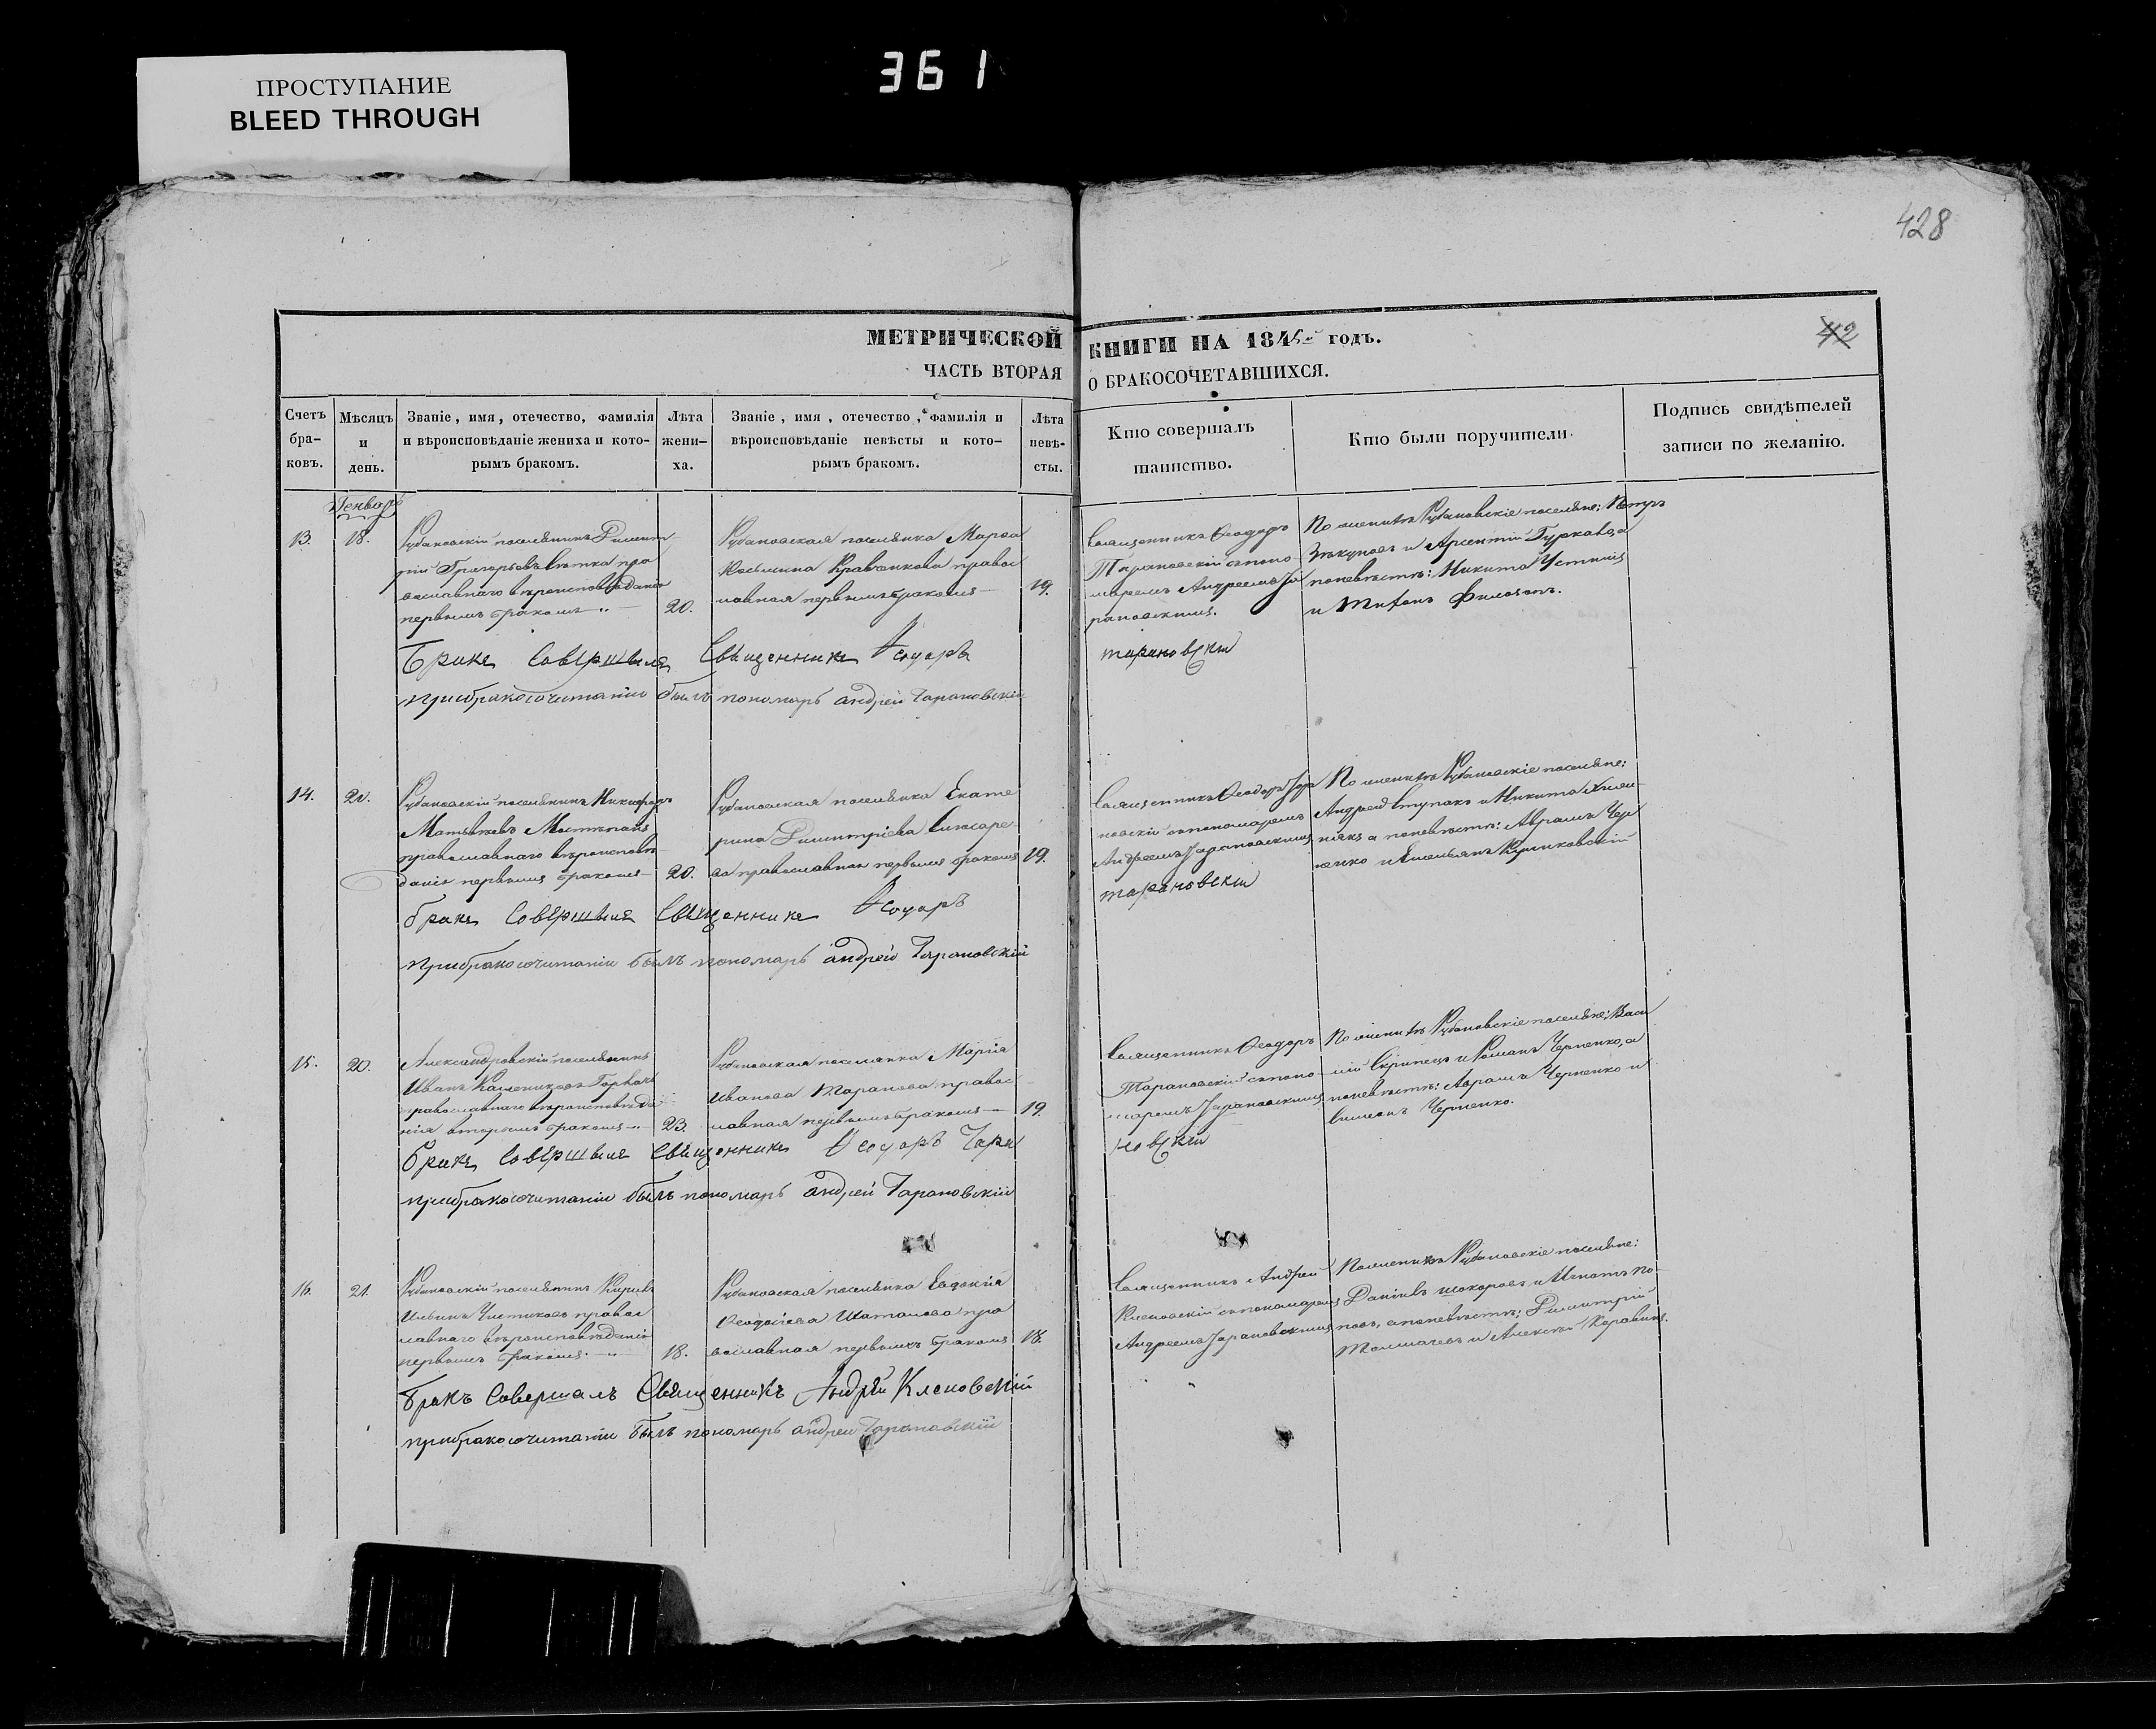 ПРОСТУПАНИЕ
BLEED THROUGH
361
428
МЕТРИЧЕСКОЙ КНИГИ НА 1845й годъ.
42
ЧАСТЬ ВТОРАЯ О БРАКОСОЧЕТАВШИХСЯ.
Счетъ бра- ковъ.
Мѣсяцъ и день.
Званіе, имя, отечество, фамилія и вѣроисповѣданіе жениха и кото- рымъ бракомъ.
Лѣта жени- ха.
Званіе, имя, отечество, фамилія и вѣроисповѣданіе невѣсты и кото- рымъ бракомъ.
Лѣта невѣ- сты.
Кто совершалъ таинство.
Кто были поручители.
Подпись свидѣтелей записи по желанію.
Генварь
13.
18.
Рубановскій поселянинъ Димит-
рій Григорьевъ пра
вославнаго вѣроисповѣданія
первымъ бракомъ
20.
Рубановская поселянка Марѳа
Косьмина Кравченкова правос
лавная первымъ бракомъ
19.
Священникъ Ѳеодоръ
Тарановскій съ поно
маремъ Андреемъ Та
рановскимъ.
По женихѣ Рубановскіе поселяне: Петръ
и Арсентій а
по невѣстѣ: Никита Устимъ
и
Бракъ совершылъ Священникъ Ѳеодоръ тарановскій
При бракосочитаніи былъ пономарь андрей Тарановскій
14.
20.
Рубановскій поселянинъ Никифоръ
Матвѣевъ
православнаго вѣроисповѣ
данія первымъ бракомъ
20.
Рубановская поселянка Екате
рина Димитріева
ва православная первымъ бракомъ
19.
Священникъ Ѳеодоръ Тара
новскій съ пономаремъ
Андреемъ Тарановскимъ
По женихѣ Рубановскіе поселяне:
Андрей Ступакъ и Никита
а по невѣстѣ: Аврамъ Чер
ненко и Емельянъ
бракъ совершылъ Священникъ Ѳеодоръ тарановскій
При бракосочитаніи былъ пономарь андрей Тарановскій
15.
20.
Александровскій поселянинъ
Иванъ Горбачъ
православнаго вѣроисповѣда
нія вторымъ бракомъ
23.
Рубановская поселянка Марія
Иванова Таранова правос
лавная первымъ бракомъ
19.
Священникъ Ѳеодоръ
Тарановскій съ поно
маремъ Тарановскимъ
По женихѣ Рубановскіе поселяне: Васи
лій Скрипецъ и Романъ Черненко, а
по невѣстѣ: Аврамъ Черненко и
Симеонъ Черненко.
бракъ совершылъ Священникъ Ѳеодоръ Тара новскій
при бракосочитаніи былъ пономарь андрей Тарановскій
16.
21.
Рубановскій поселянинъ Кирилъ
Ильинъ Чистяковъ правос
лавнаго вѣроисповѣданія
первымъ бракомъ
18.
Рубановская поселянка Евдокія
Ѳеодосіева Шаталова пра
вославная первымъ бракомъ
18.
Священникъ Андрей
Клсновскій съ пономаремъ
Андреемъ Тарановскимъ
По женихѣ Рубановскіе поселяне:
Даніилъ и Игнатъ По
повъ, а по невѣстѣ: Димитрій
Толмачевъ и Алексѣй
Бракъ Совершалъ Священникъ Андрей Клсновскій
при бракосочитаніи былъ пономарь андрей Тарановскій